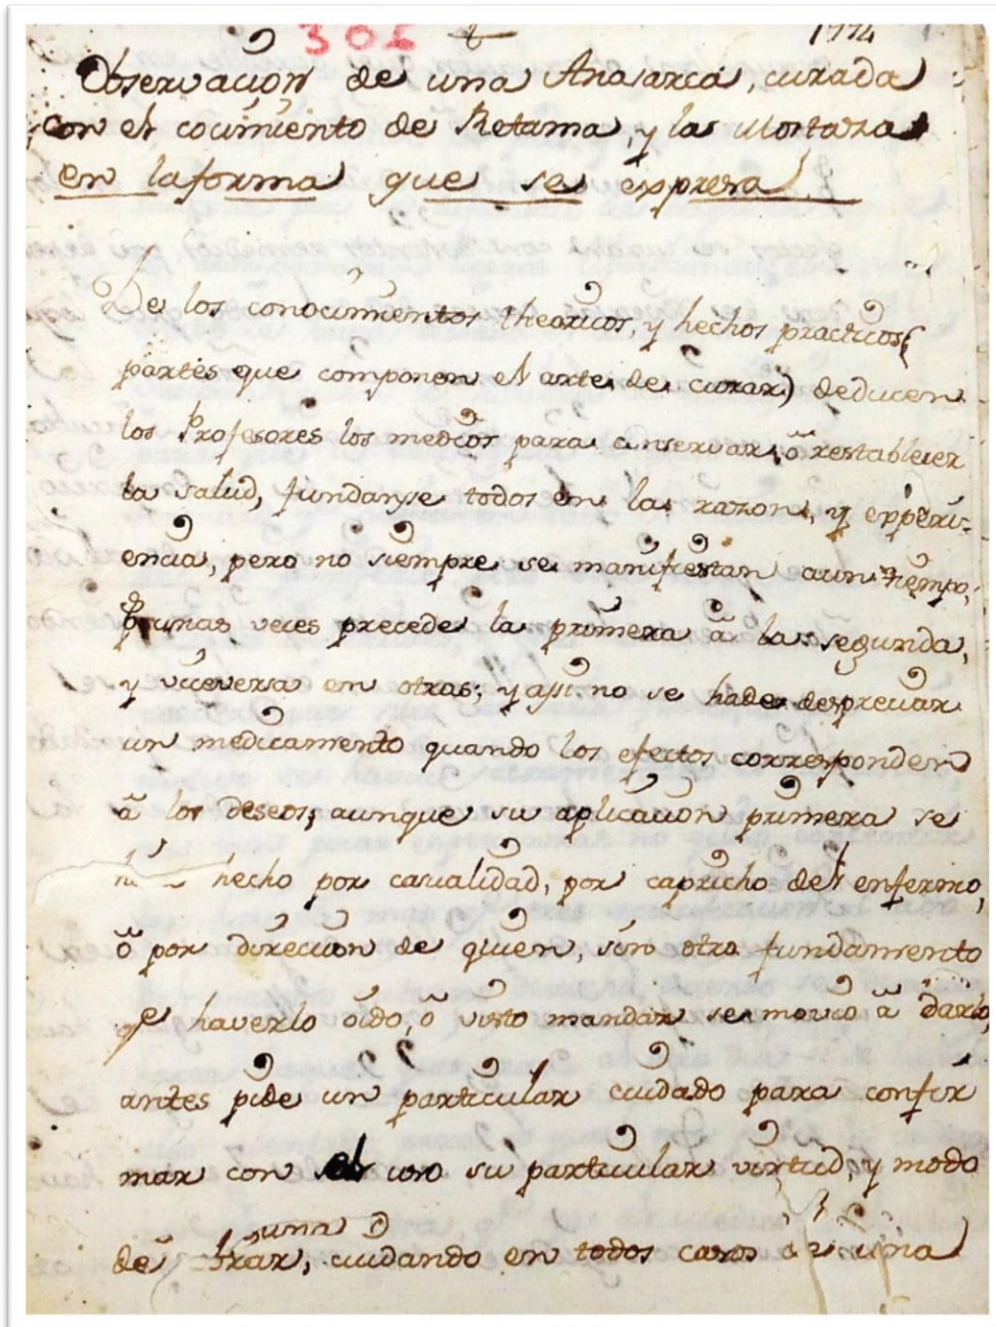 302
1774
Observacion de una Anasarca, curada
con el cocimiento de Retama, y las Mostaza
en la forma que se expresa
De los conocimientos theoricos, y hechos practicos (
partes que componen el arte de curar) deducen
los Profesores los medios para conservar, õ restablecer
la salud, fundanse todos en la razon, y experi-
encia, pero no siempre se manifiestan aun tiempo,
unas veces precede la primera â la segunda,
y viceversa en otras; y asi no se hade despreciar
un medicamento quando los efectos corresponden
â los deseos, aunque su aplicacion primera se
hecho por casualidad, por capricho del enfermo,
õ por direccion de quien, sin otro fundamento
qe haverlo oido, õ visto mandar se movio â darlo,
antes pide un particular cuidado para confir
mar con el uso su particular virtud, y modo
de , cuidando en todos casos una